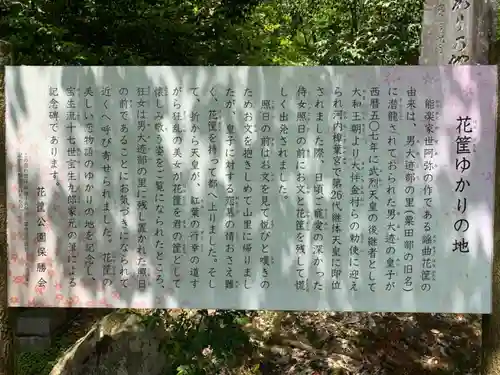 花筐ゆかりの地
能楽家世阿弥の作である謡曲花筐の
由来は、男大迹部の里(粟田部の旧名)
に潜龍されておられた男大迹の皇子が
西暦五〇七年に武烈天皇の後継者として
大和王朝より大伴金村らの勅使に迎え
られ河内樟葉宮で第26代継体天皇に即位
されました際、日頃ご寵愛の深かった
侍女照日の前にお文と花筐を残して慌
しく出発されました。
照日の前はお文を見て悦びと嘆きの
ためお文を抱きしめて山里に帰りまし
たが、皇子に対する恋慕の情おさえ難
く、花筐を持って都へ上りました。そし
て、折から天皇が、紅葉の行幸の道す
がら狂乱の美女が花筐を君の筐として
懐しみ歌う姿をご覧になられたところ、
狂女は男大迹部の里に残し置かれた照日
の前であることにお気づきになられて
近くへ呼び寄せられました。花筐の
美しい恋物語のゆかりの地を記念し、
宝生流十七世宝生九郎家元の筆による
記念碑であります。
花筐公園保勝会